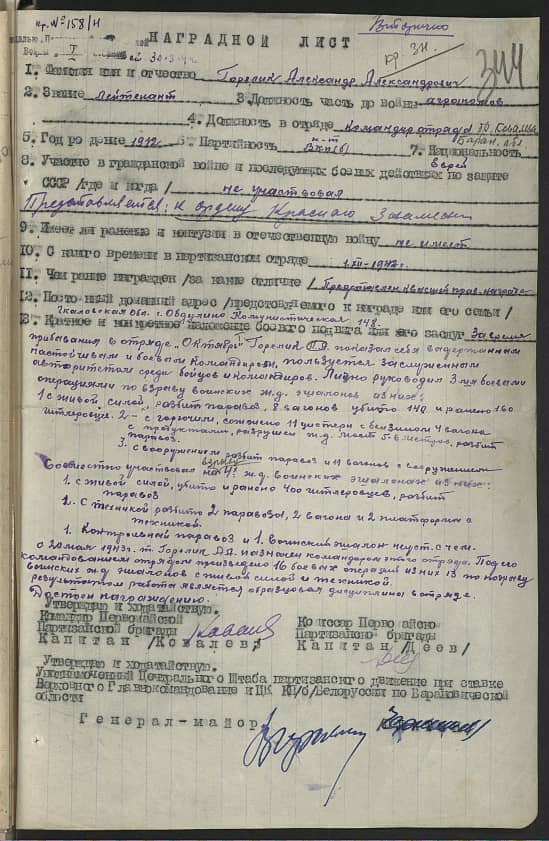 Пр. № 158/Н
Вторично
НАГРАДНОЙ ЛИСТ
пр. зн.
344
1. Фамилия имя и отчество Горелик Александр Александрович
2. Звание Лейтенант 3. Должность часть до войны агрономов
4. Должность в отряде Командир отряда
5. Год рождения 1912 6. Партийность к-т ВКП(б) 7. Национальность еврей
8. Участие в гражданской войне и последующих боевых действиях по защите
СССР /где и когда/ не участвовал
Представляется: к ордену Красного Знамени
9. Имеет ли ранения и контузии в отечественную войну не имеет
10. С какого времени в партизанском отряде 1.XII-1942г.
11. Чем ранее награжден /за какие отличия/ Представлен к высшей прав. награде
12. Постоянный домашний адрес /представляемого к награде или его семьи/
Чкаловская обл. г. Абдулино Коммунистическая 148.
13. Краткое и конкретное изложение боевого подвига или его заслуг За время
пребывания в отряде "Октябрь" Горелик А.А. показал себя выдержанным
настойчивым и боевым командиром, пользуется заслуженным
авторитетом среди бойцов и командиров. Лично руководил 3-мя боевыми
операциями по взрыву воинских ж.д. эшелонов из них:
1 с живой силой, разбит паровоз, 8 вагонов убито 140 и ранено 160
гитлеровцев. 2 - с горючим, сожжено 11 цистерн с бензином 4 вагона
с продуктами, разрушен ж.д. мост 5-6 метров, разбит
паровоз.
3. с вооружением разбит паровоз и 11 вагонов с вооружением
Совместно участвовал на взрыве 4х ж.д. воинских эшелонах из них:
1. с живой силой, убито и ранено 400 гитлеровцев, разбит
паровоз
2. С техникой разбито 2 паровоза, 2 вагона и 2 платформы с
техникой.
1. Контрольный паровоз и 1. воинский эшелон неуст. с чем.
С 20 мая 1943г. т. Горелик А.А. назначен командиром этого отряда. Под его
командованием отрядом произведено 16 боевых операций из них 13 по взрыву
воинских ж.д. эшелонов с живой силой и техникой.
результатом работы является образцовая дисциплина в отряде.
Достоин награждению.
Утверждаю и ходатайствую.
Командир Первомайской
Партизанской бригады
Капитан /Ковалев/
Комиссар Первомайской
Партизанской бригады
Капитан /Деев/
Утверждаю и ходатайствую.
Уполномоченный Центрального Штаба партизанского движения при ставке
Верховного Главнокомандования и ЦК КП/б/Белоруссии по Барановической
области
Генерал-майор